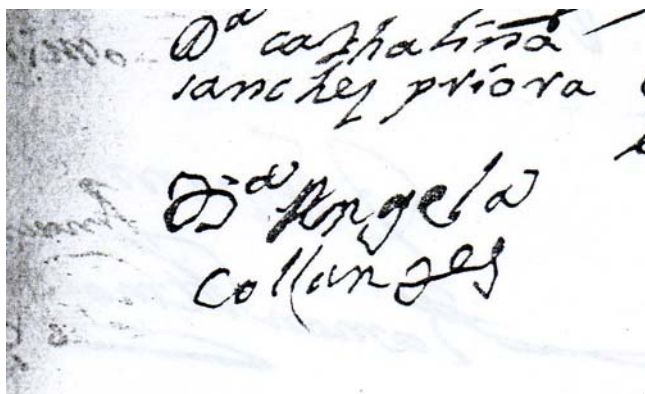 Dª cathalina
sanchez priora
Dª Angela
Collanzes